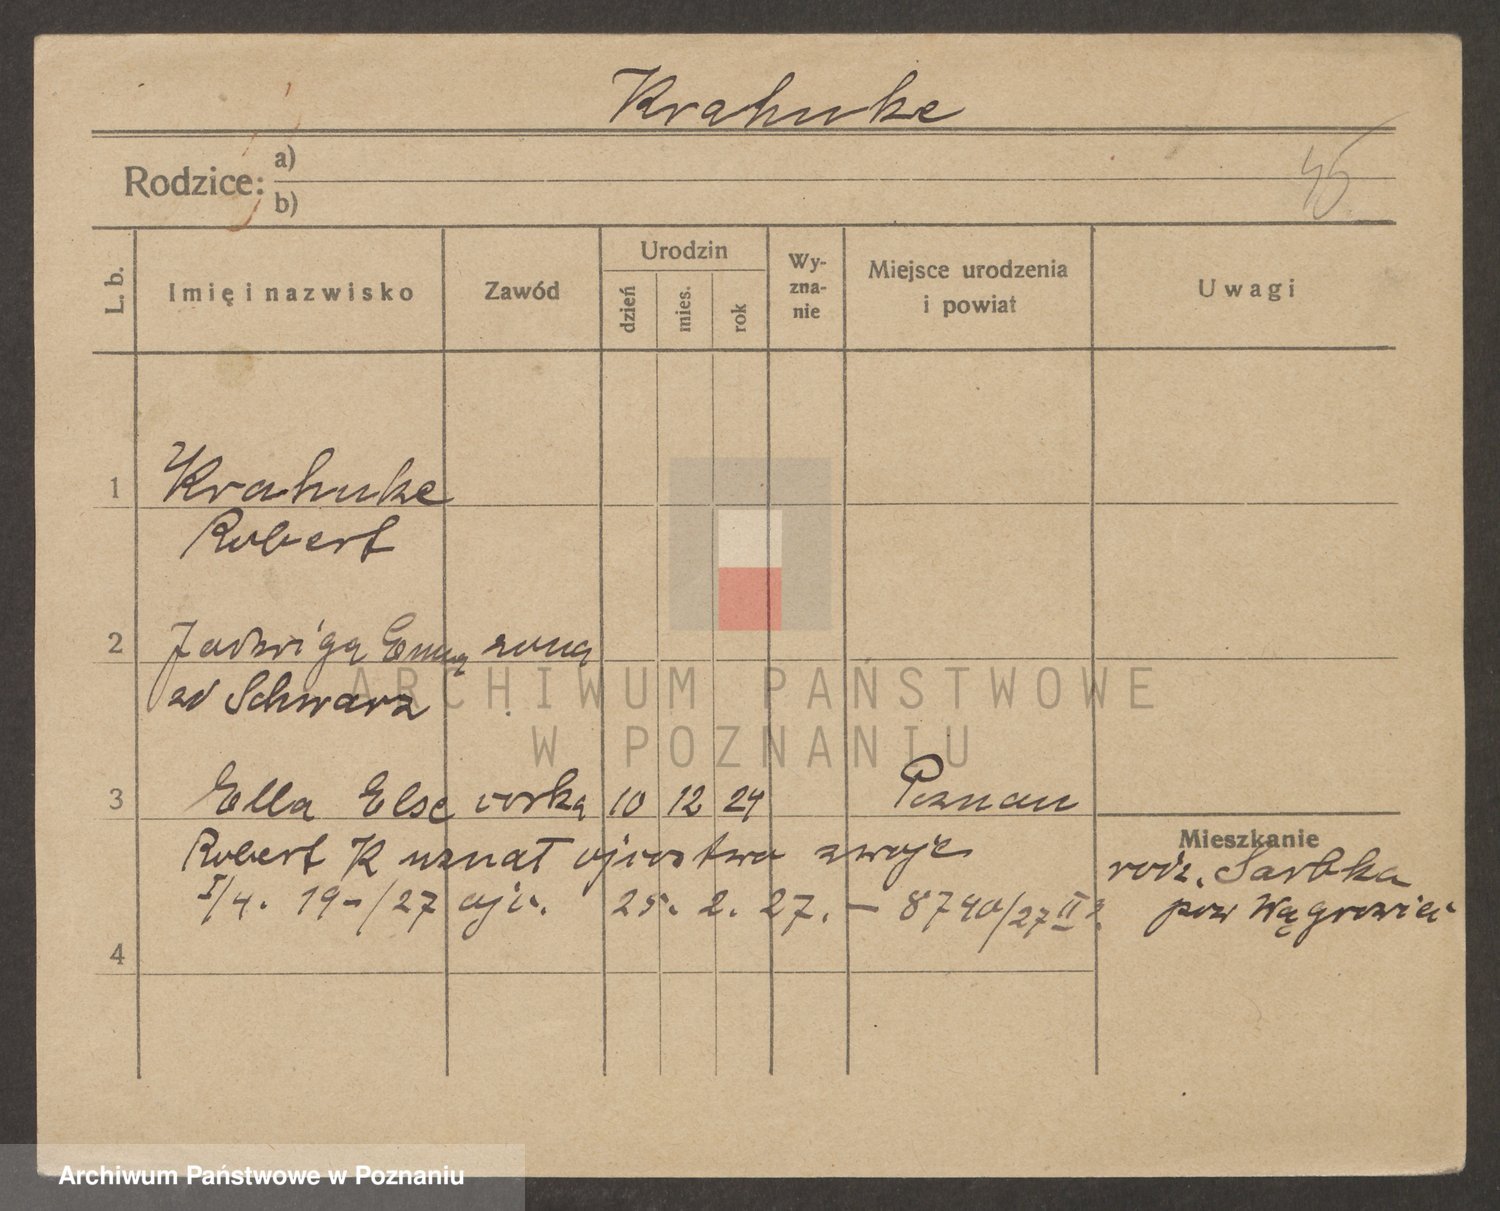 Krahnke
Rodzice: a)
b)
45
L. b. Imię i nazwisko Zawód Urodzin dzień mies. rok Wy-zna-nie Miejsce urodzenia i powiat Uwagi
1 Krahnke
Robert
2 Jadwiga Emma żona
zd Schwarz
ARCHIWUM PAŃSTWOWE
W POZNANIU
3 Ella Else córka 10 12 24 Poznań
Mieszkanie
Robert K uznał ojcostwo swoje
rodz. Sarbka
I/4. 19-/27 ojc. 25. 2. 27. — 8740/27 II
pow Wągrowiec
4
Archiwum Państwowe w Poznaniu